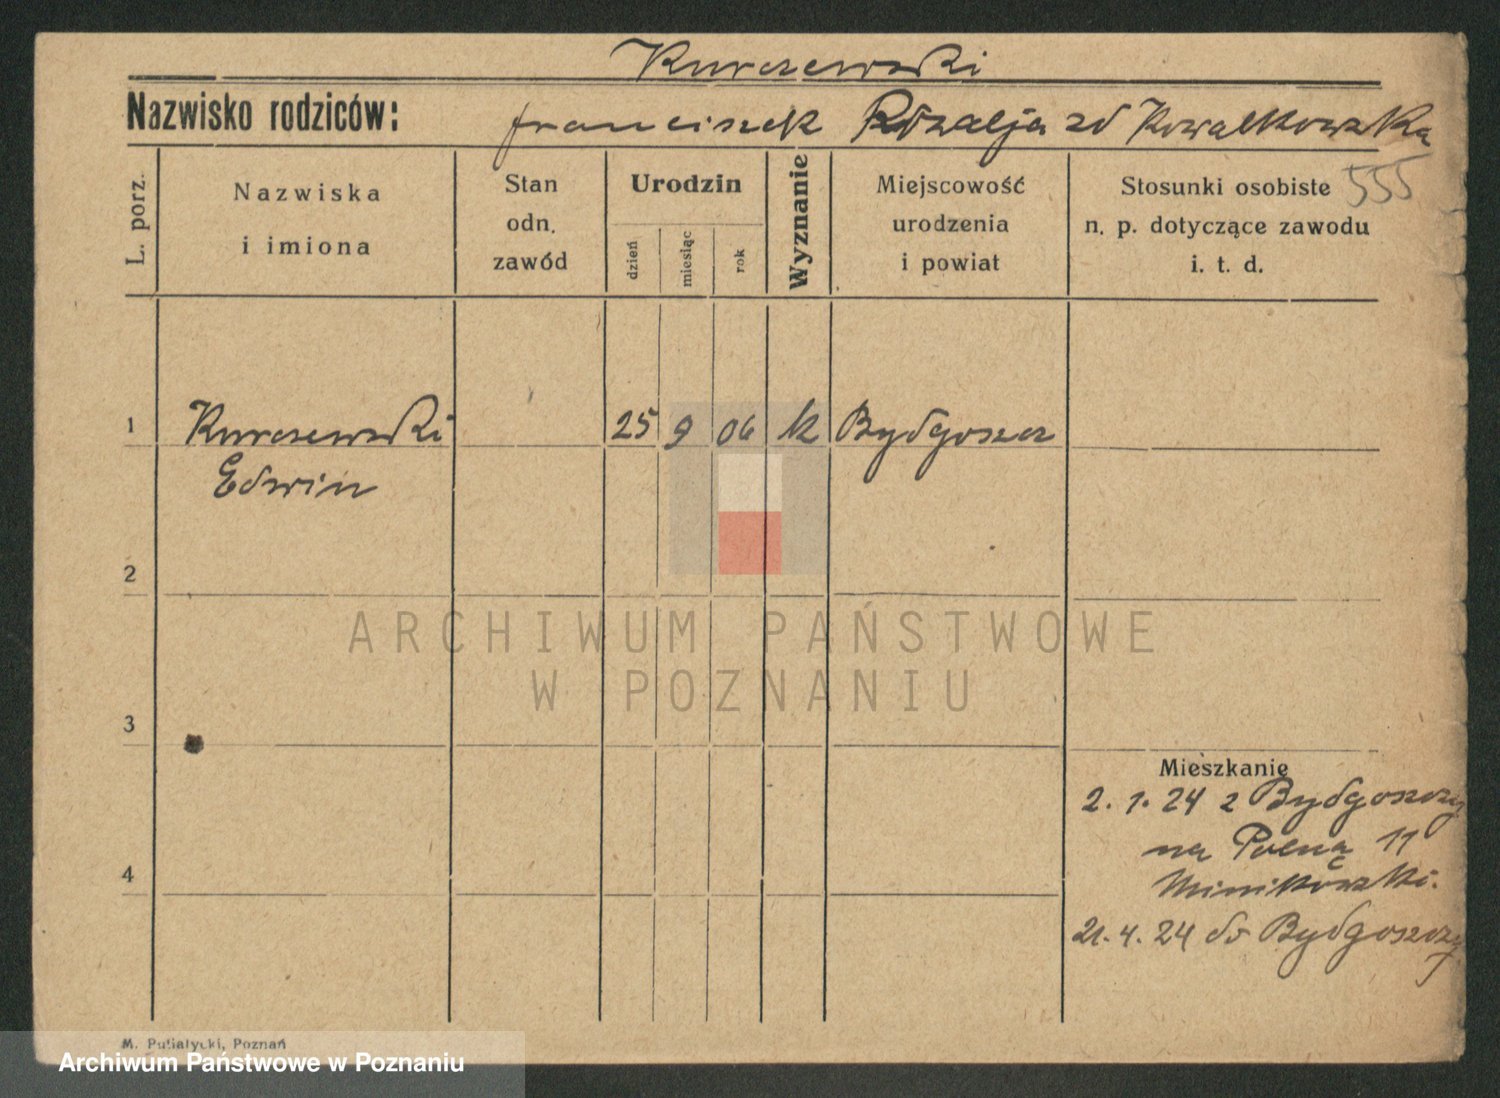 Kurczewski
Nazwisko rodziców: Franciszek Rozalja zd Kowalkowska
L. porz.
Nazwiska
i imiona
Stan
odn.
zawód
Urodzin
dzień
miesiąc
rok
Wyznanie
Miejscowość
urodzenia
i powiat
Stosunki osobiste
n. p. dotyczące zawodu
i. t. d.
555
1 Kurczewski 25 9 06 k Bydgoszcz
Edwin
2
3
4
Mieszkanie
2. 1. 24 z Bydgoszczy
na Polną 11
21. 4. 24 do Bydgoszczy
ARCHIWUM PAŃSTWOWE
W POZNANIU
M. Putiatycki, Poznań
Archiwum Państwowe w Poznaniu